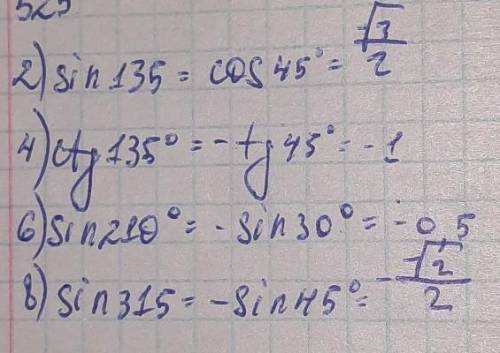 525
2) sin 135 = cos 45° = √3/2
4) ctg 135° = -tg 45° = -1
6) sin 210° = -sin 30° = -0,5
8) sin 315 = -sin 45° = -√2/2